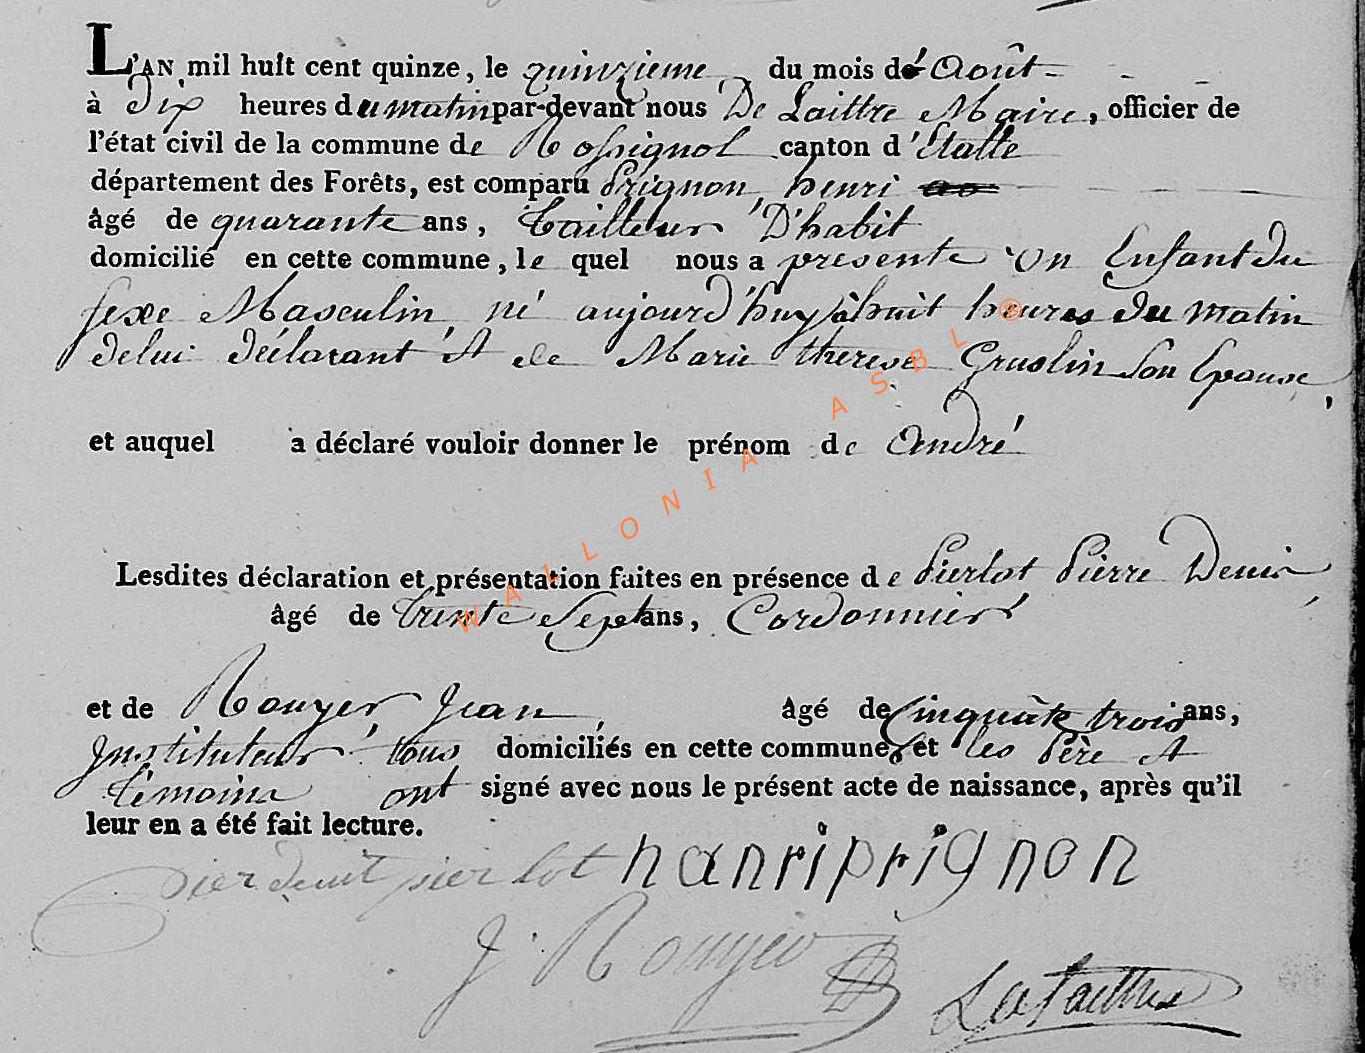 L'AN mil huit cent quinze, le quinzieme du mois de Août
à Dix heures du matin par-devant nous De Laittre Maire, officier de
l'état civil de la commune de Rossignol canton d'Etalle
département des Forêts, est comparu Prignon, henri
âgé de quarante ans, tailleur D'habit
domicilié en cette commune, le quel nous a presente Un Enfant du
sexe Masculin, né aujourd'huy à huit heures du matin
de lui déclarant Et de Marie therese Gruslin Son Epouse,
et auquel a déclaré vouloir donner le prénom de André
Lesdites déclaration et présentation faites en présence de Pierlot Pierre Denis,
âgé de trente Sept ans, Cordonnier
et de Rouyer, Jean, âgé de Cinquate trois ans,
Instituteur, tous domiciliés en cette commune, et les Père et
témoins ont signé avec nous le présent acte de naissance, après qu'il
leur en a été fait lecture.
pier denit pier lot hanriprignon
J. Rouyer
WALLONIA ASBL ®